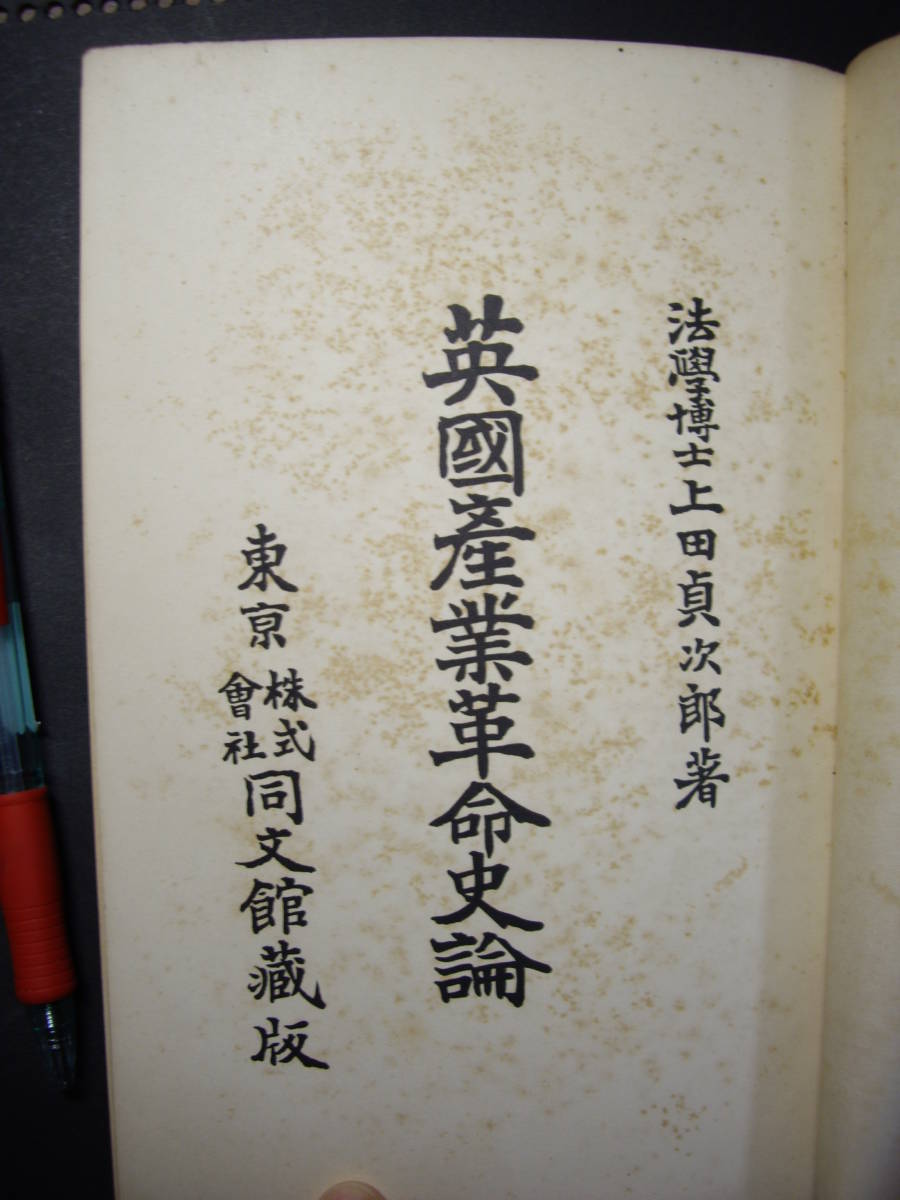 法學博士上田貞次郎著
英國產業革命史論
東亰株式會社同文館藏版